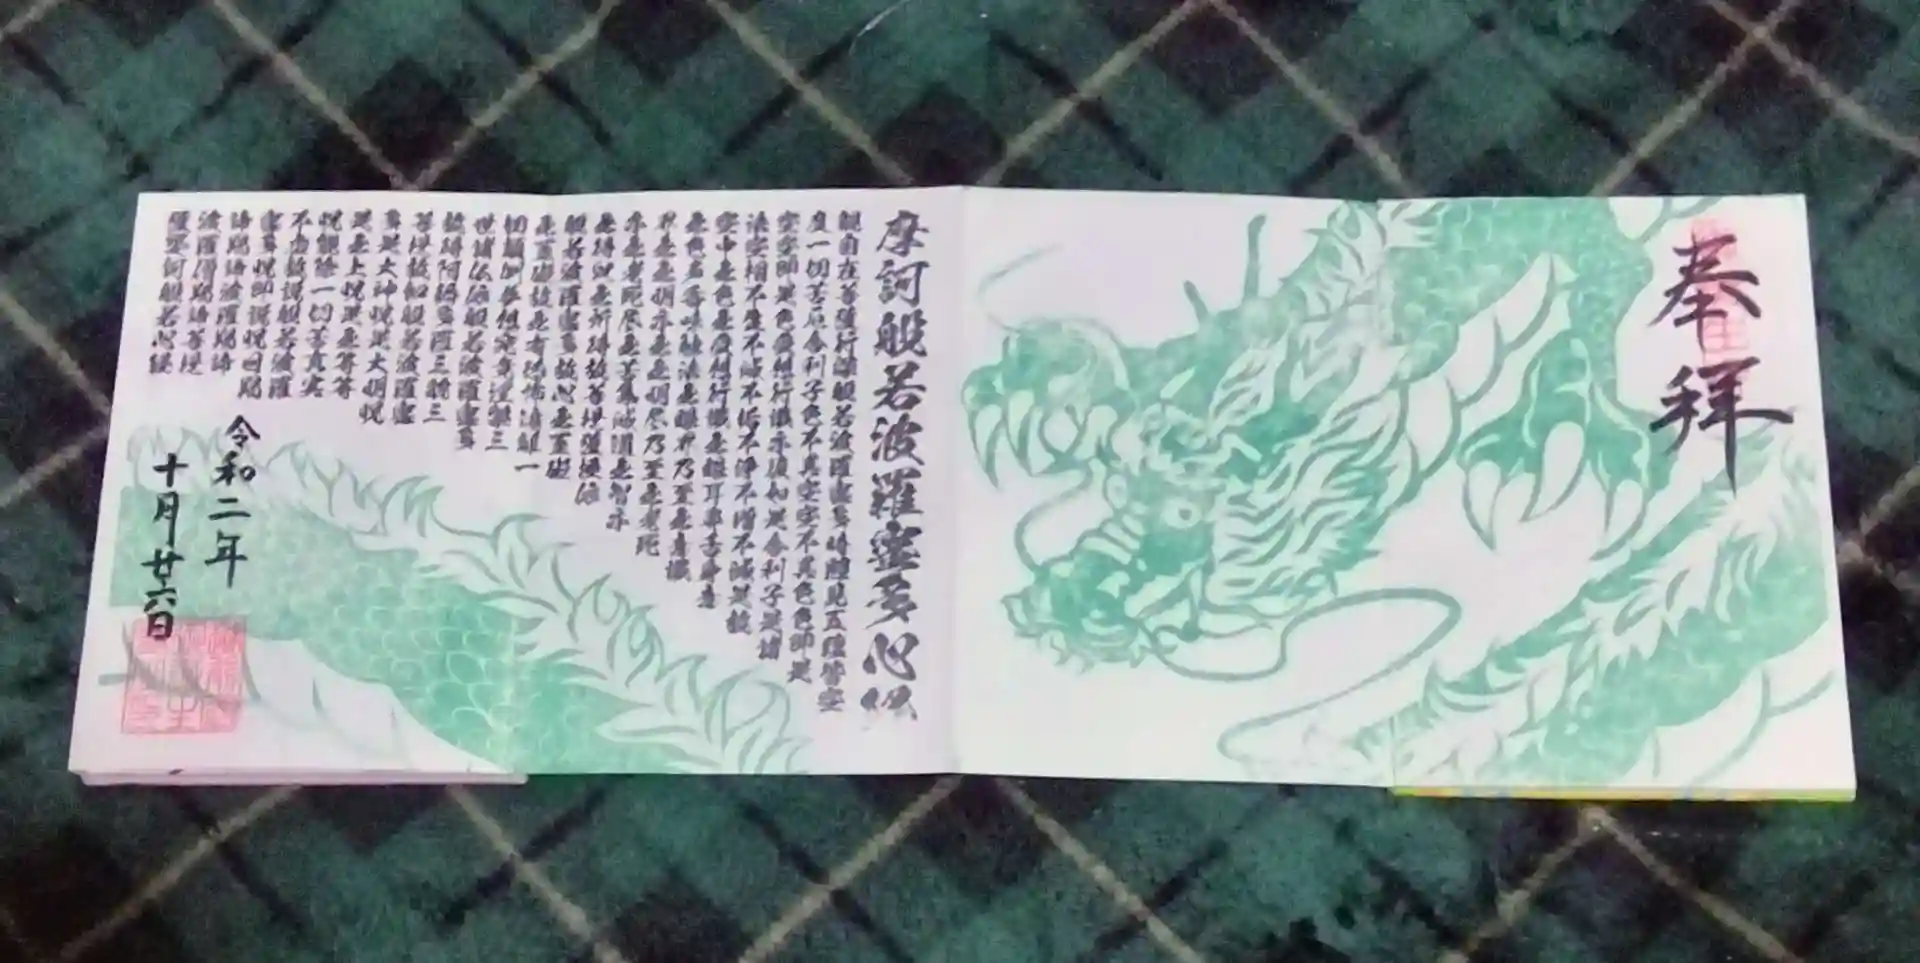 奉拝
摩訶般若波羅蜜多心経
観自在菩薩行深般若波羅蜜多時照見五蘊皆空
度一切苦厄舎利子色不異空空不異色色即是
空空即是色受想行識亦復如是舎利子是諸
法空相不生不滅不垢不浄不増不減是故
空中無色無受想行識無眼耳鼻舌身意
無色声香味触法無眼界乃至無意識
界無無明亦無無明尽乃至無老死
亦無老死尽無苦集滅道無智亦
無得以無所得故菩提薩埵依
般若波羅蜜多故心無罣礙
無罣礙故無有恐怖遠離一
切顛倒夢想究竟涅槃三
世諸仏依般若波羅蜜多
故得阿耨多羅三藐三
菩提故知般若波羅蜜
多是大神呪是大明呪
是無上呪是無等等
呪能除一切苦真実
不虚故説般若波羅
蜜多呪即説呪曰羯
諦羯諦波羅羯諦
波羅僧羯諦菩提
薩婆訶般若心経
令和二年
十月廿六日